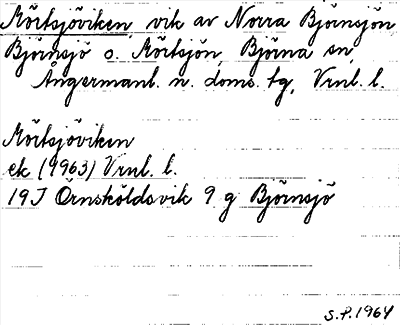 Mörtsjöviken, vik av Norra Björnsjön
Björnsjö o. Mörtsjön, Björna sn,
Ångermanl. n. doms. tg, Vrnl. l.
Mörtsjöviken
ek (1963) Vrnl. l.
19J Örnsköldsvik 9 g Björnsjö
S.P. 1964